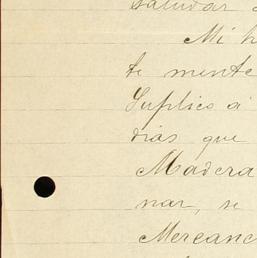 saludar
Mi h
te mente
Suplico á
dias que
Madera
nar, se
Mercanc